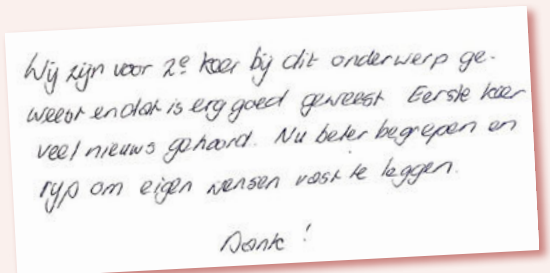 Wij zijn voor 2e keer bij dit onderwerp ge-
weest en dat is erg goed geweest Eerste keer
veel nieuws gehoord. Nu beter begrepen en
ryp om eigen wensen vast te leggen.
Dank!